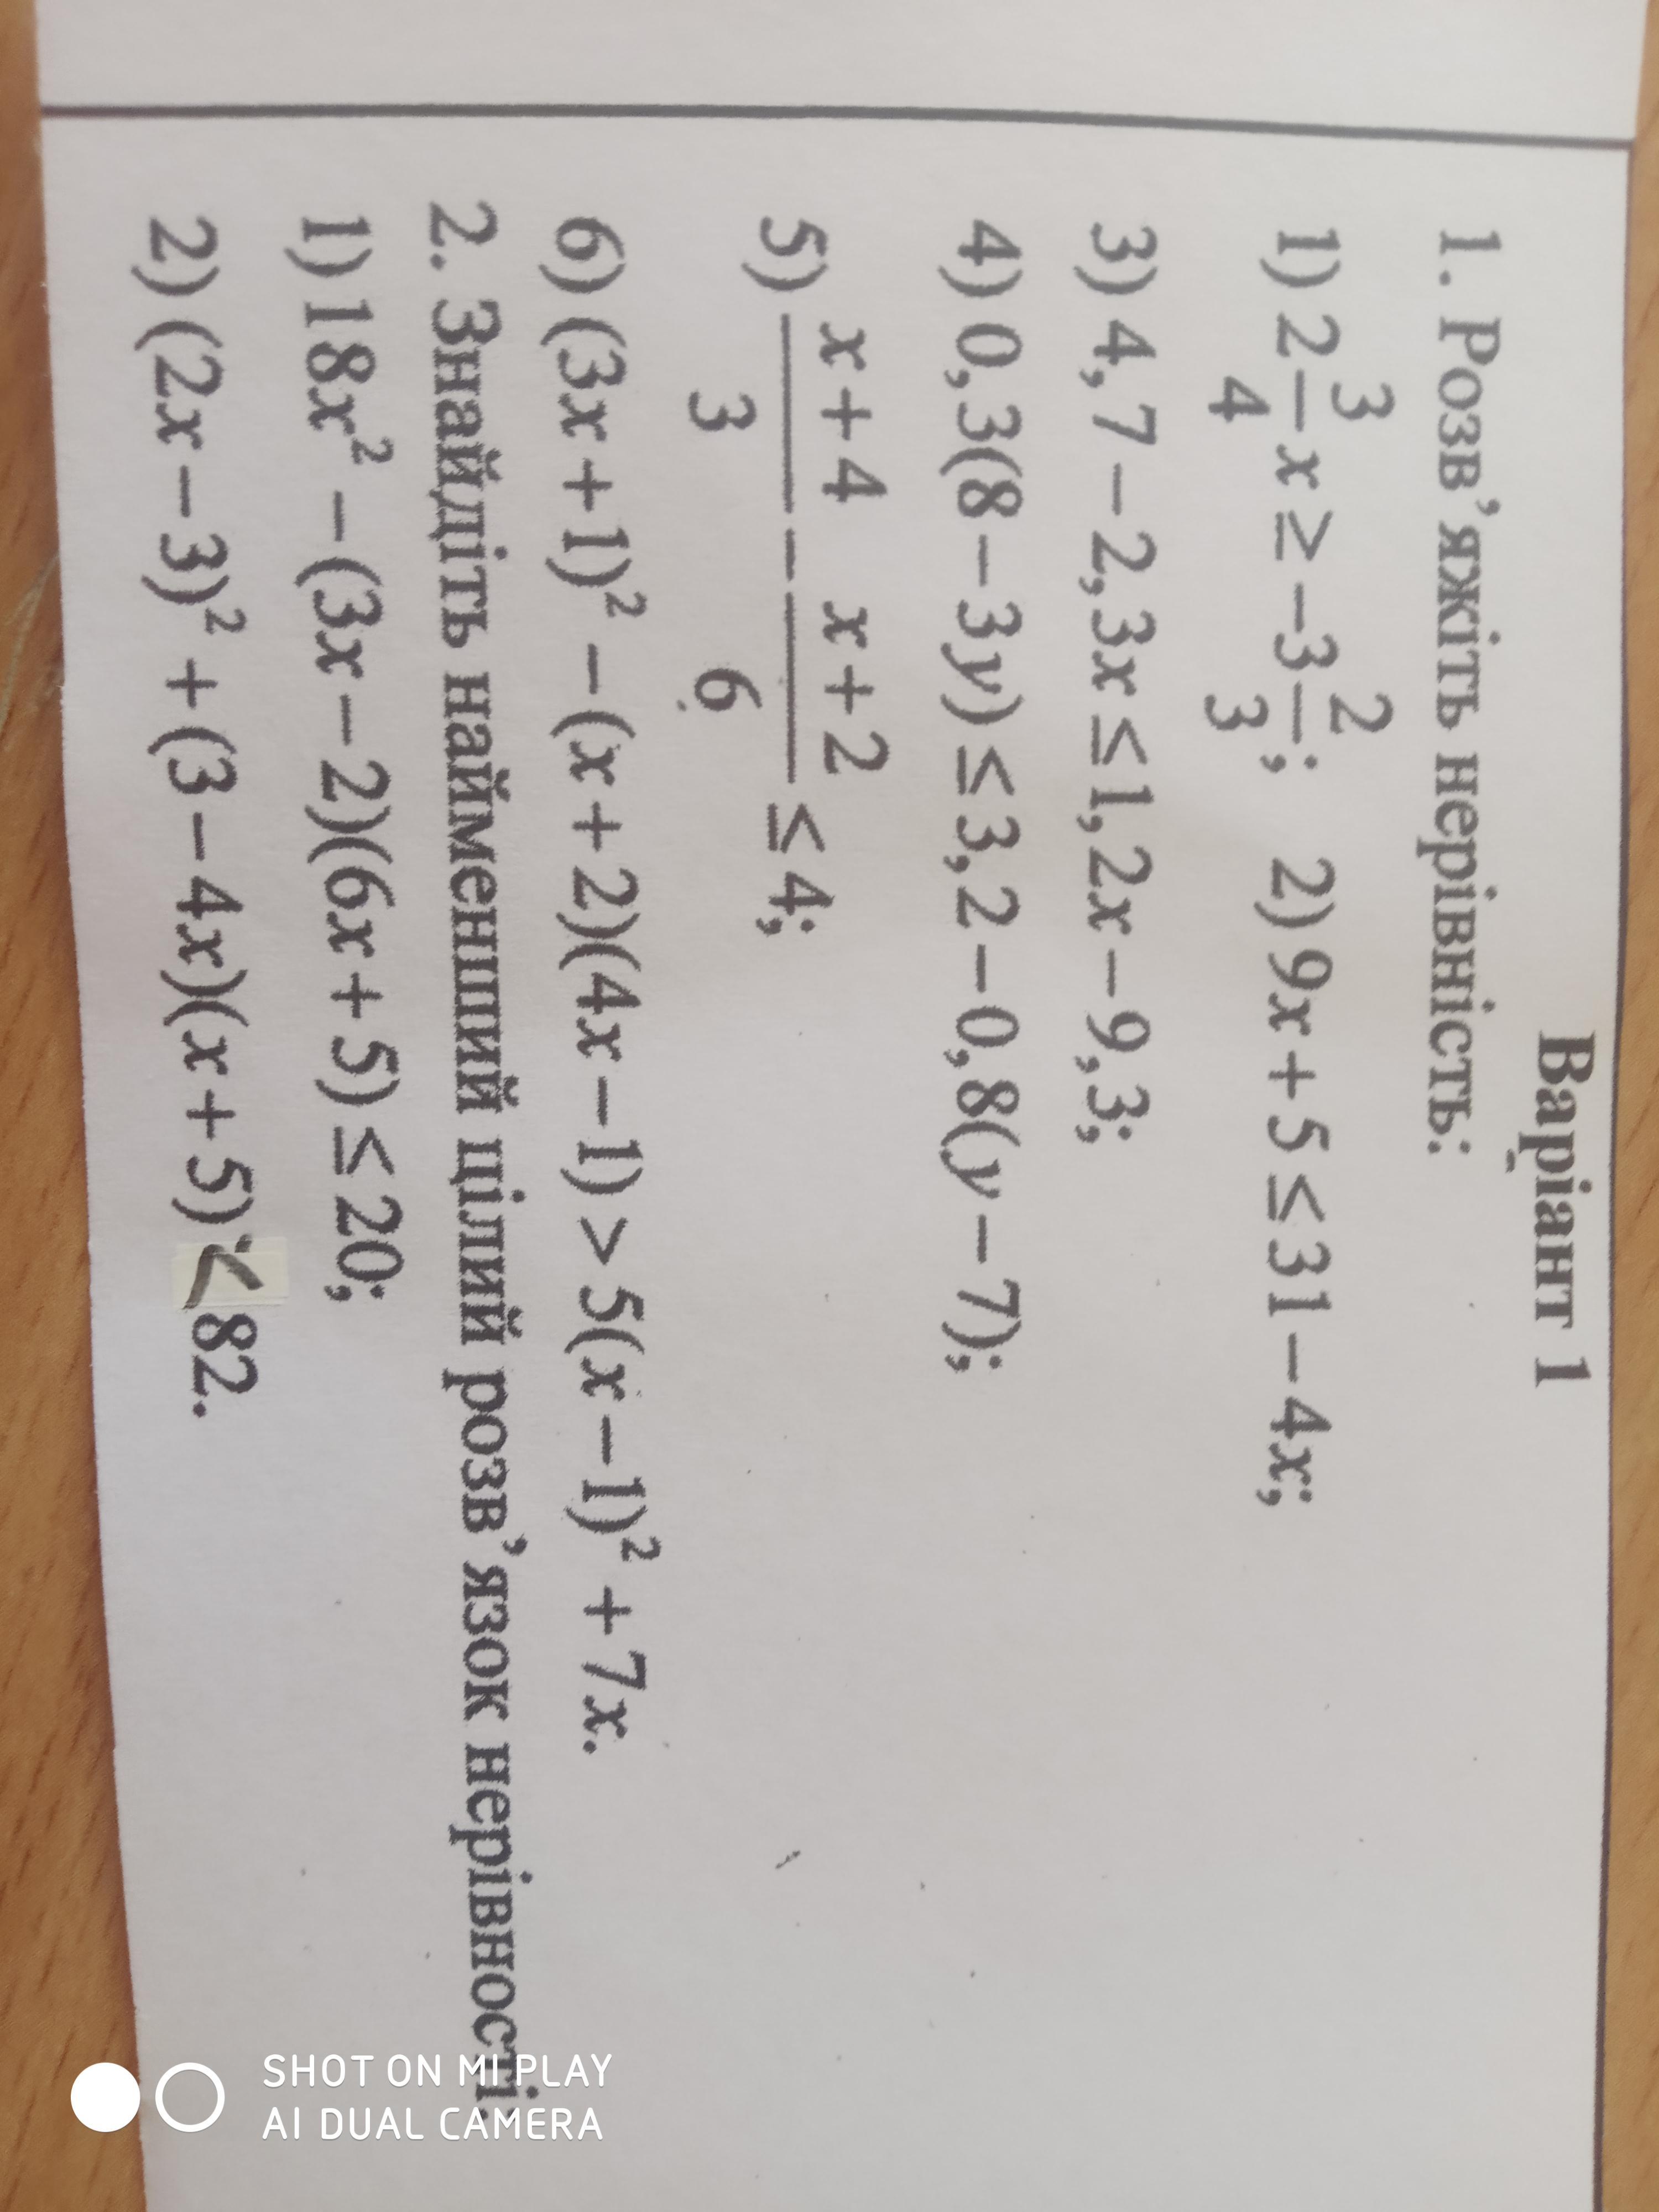 Варіант 1
1. Розв’яжіть нерівність:
1) 2 3/4 x ≥ −3 2/3; 2) 9x + 5 ≤ 31 − 4x;
3) 4,7 − 2,3x ≤ 1,2x − 9,3;
4) 0,3(8 − 3y) ≤ 3,2 − 0,8(y − 7);
5) (x + 4)/3 − (x + 2)/6 ≤ 4;
6) (3x + 1)² − (x + 2)(4x − 1) > 5(x − 1)² + 7x.
2. Знайдіть найменший цілий розв’язок нерівності:
1) 18x² − (3x − 2)(6x + 5) ≤ 20;
2) (2x − 3)² + (3 − 4x)(x + 5) < 82.
SHOT ON MI PLAY
AI DUAL CAMERA